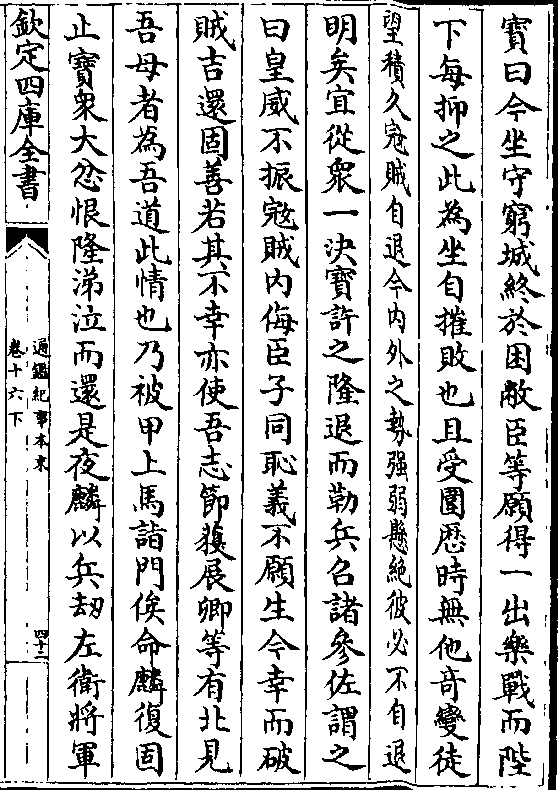 寶曰今坐守窮城終於困敝臣等願得一出樂戰而陛
下每抑之此為坐自摧敗也且受圍歴時無他竒變徒
望積久寇賊自退今內外之勢强弱懸絶彼必不自退
明矣宜從衆一決寶許之隆退而勒兵召諸參佐謂之
曰皇威不振寇賊內侮臣子同恥義不顧生今幸而破
賊吉還固善若其不幸亦使吾志節獲展卿等有北見
吾母者為吾道此情也乃被甲上馬詣門俟命麟復固
止寶衆大忿恨隆涕泣而還是夜麟以兵刼左衛將軍
欽定四庫全書
通鑑紀事本末
卷十六下
四十二